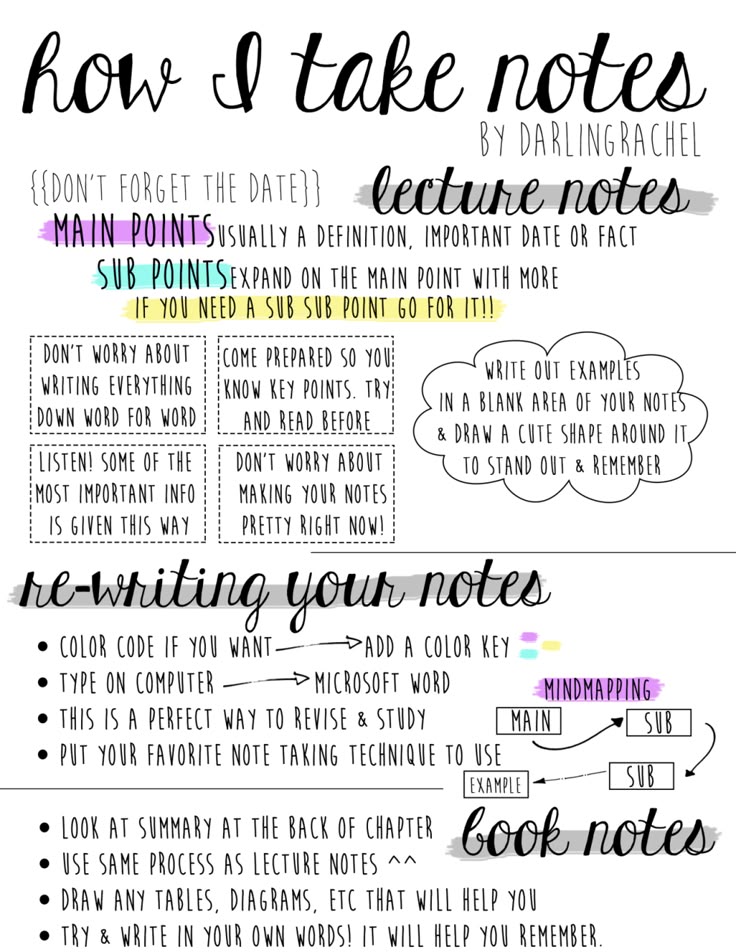 how I take notes
BY DARLINGRACHEL
{{DON'T FORGET THE DATE}}
lecture notes
MAIN POINTS USUALLY A DEFINITION, IMPORTANT DATE OR FACT
SUB POINTS EXPAND ON THE MAIN POINT WITH MORE
IF YOU NEED A SUB SUB POINT GO FOR IT!!
DON'T WORRY ABOUT
WRITING EVERYTHING
DOWN WORD FOR WORD
COME PREPARED SO YOU
KNOW KEY POINTS. TRY
AND READ BEFORE
LISTEN! SOME OF THE
MOST IMPORTANT INFO
IS GIVEN THIS WAY
DON'T WORRY ABOUT
MAKING YOUR NOTES
PRETTY RIGHT NOW!
WRITE OUT EXAMPLES
IN A BLANK AREA OF YOUR NOTES
& DRAW A CUTE SHAPE AROUND IT
TO STAND OUT & REMEMBER
re-writing your notes
• COLOR CODE IF YOU WANT → ADD A COLOR KEY
• TYPE ON COMPUTER → MICROSOFT WORD
• THIS IS A PERFECT WAY TO REVISE & STUDY
• PUT YOUR FAVORITE NOTE TAKING TECHNIQUE TO USE
MINDMAPPING
MAIN
SUB
SUB
EXAMPLE
book notes
• LOOK AT SUMMARY AT THE BACK OF CHAPTER
• USE SAME PROCESS AS LECTURE NOTES ^^
• DRAW ANY TABLES, DIAGRAMS, ETC THAT WILL HELP YOU
• TRY & WRITE IN YOUR OWN WORDS! IT WILL HELP YOU REMEMBER.